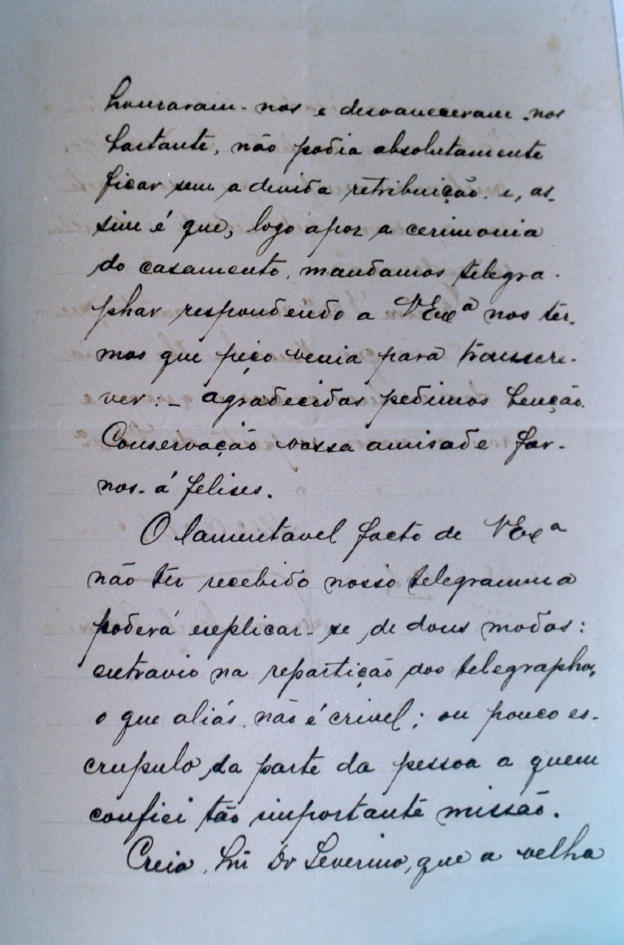 honraram-nos e desvaneceram-nos
bastante, não podia absolutamente
ficar sem a devida retribuição. e, as-
sim é que, logo apoz a cerimonia
do casamento, mandamos telegra-
phar respondendo a VExª nos ter-
mos que peço venia para transcre-
ver: _ Agradecidos pedimos benção.
Conservação vossa amisade far-
nos-á felises.
O lamentavel facto de VExª
não ter recebido nosso telegramma
poderá explicar-se de dous modos:
extravio na repartição dos telegraphos,
o que aliás, não é crivel; ou pouco es-
crupulo da parte da pessoa a quem
confiei tão importante missão.
Creia, Dr Severino, que a velha